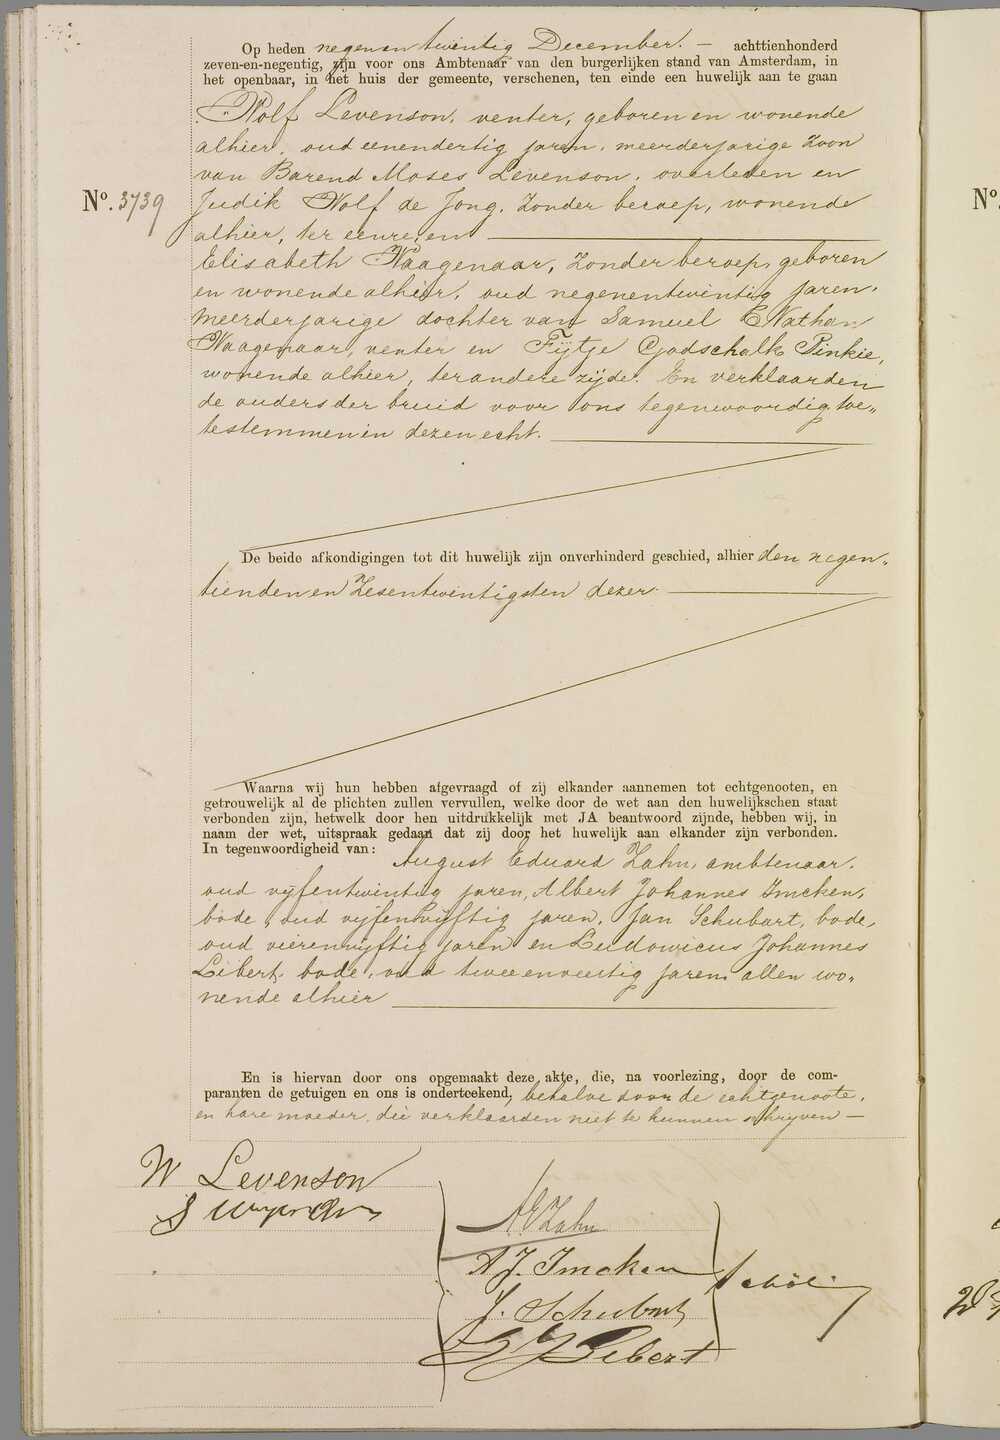 Op heden negenentwintig December. — achttienhonderd
zeven-en-negentig, zijn voor ons Ambtenaar van den burgerlijken stand van Amsterdam, in
het openbaar, in het huis der gemeente, verschenen, ten einde een huwelijk aan te gaan
Wolf Levenson, venter, geboren en wonende
alhier, oud eenendertig jaren, meerderjarige zoon
van Barend Moses Levenson, overleden en
No. 3739
Judik Wolf de Jong, zonder beroep, wonende
alhier, ter eenre, en
Elisabeth Waagenaar, zonder beroep, geboren
en wonende alhier, oud negenentwintig jaren,
meerderjarige dochter van Samuel Nathan
Waagenaar, venter en Fijtje Godschalk Pinkie,
wonende alhier, ter andere zijde. En verklaarden
de ouders der bruid voor ons tegenwoordig, toe„
testemmen in dezen echt.
De beide afkondigingen tot dit huwelijk zijn onverhinderd geschied, alhier den negen„
tienden en zesentwintigsten dezer.
Waarna wij hun hebben afgevraagd of zij elkander aannemen tot echtgenooten, en
getrouwelijk al de plichten zullen vervullen, welke door de wet aan den huwelijkschen staat
verbonden zijn, hetwelk door hen uitdrukkelijk met JA beantwoord zijnde, hebben wij, in
naam der wet, uitspraak gedaan dat zij door het huwelijk aan elkander zijn verbonden.
In tegenwoordigheid van: August Eduard Zahn, ambtenaar,
oud vijfentwintig jaren, Albert Johannes Imcken,
bode, oud vijfenvijftig jaren, Jan Schubart, bode,
oud vierenvijftig jaren en Ludowicus Johannes
Libert, bode, oud tweeenveertig jaren, allen wo„
nende alhier
En is hiervan door ons opgemaakt deze akte, die, na voorlezing, door de com-
paranten de getuigen en ons is onderteekend, behalve door de echtgenoote,
en hare moeder, die verklaarden niet te kunnen schrijven —
W Levenson
AEZahn
A J. Imcken
J. Schubart
L J Libert
No.